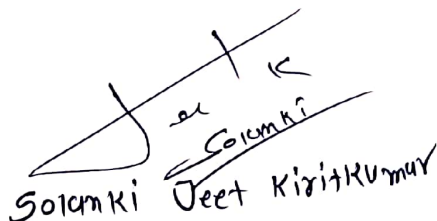 Jeet K
Solanki
Solanki Jeet Kiritkumar